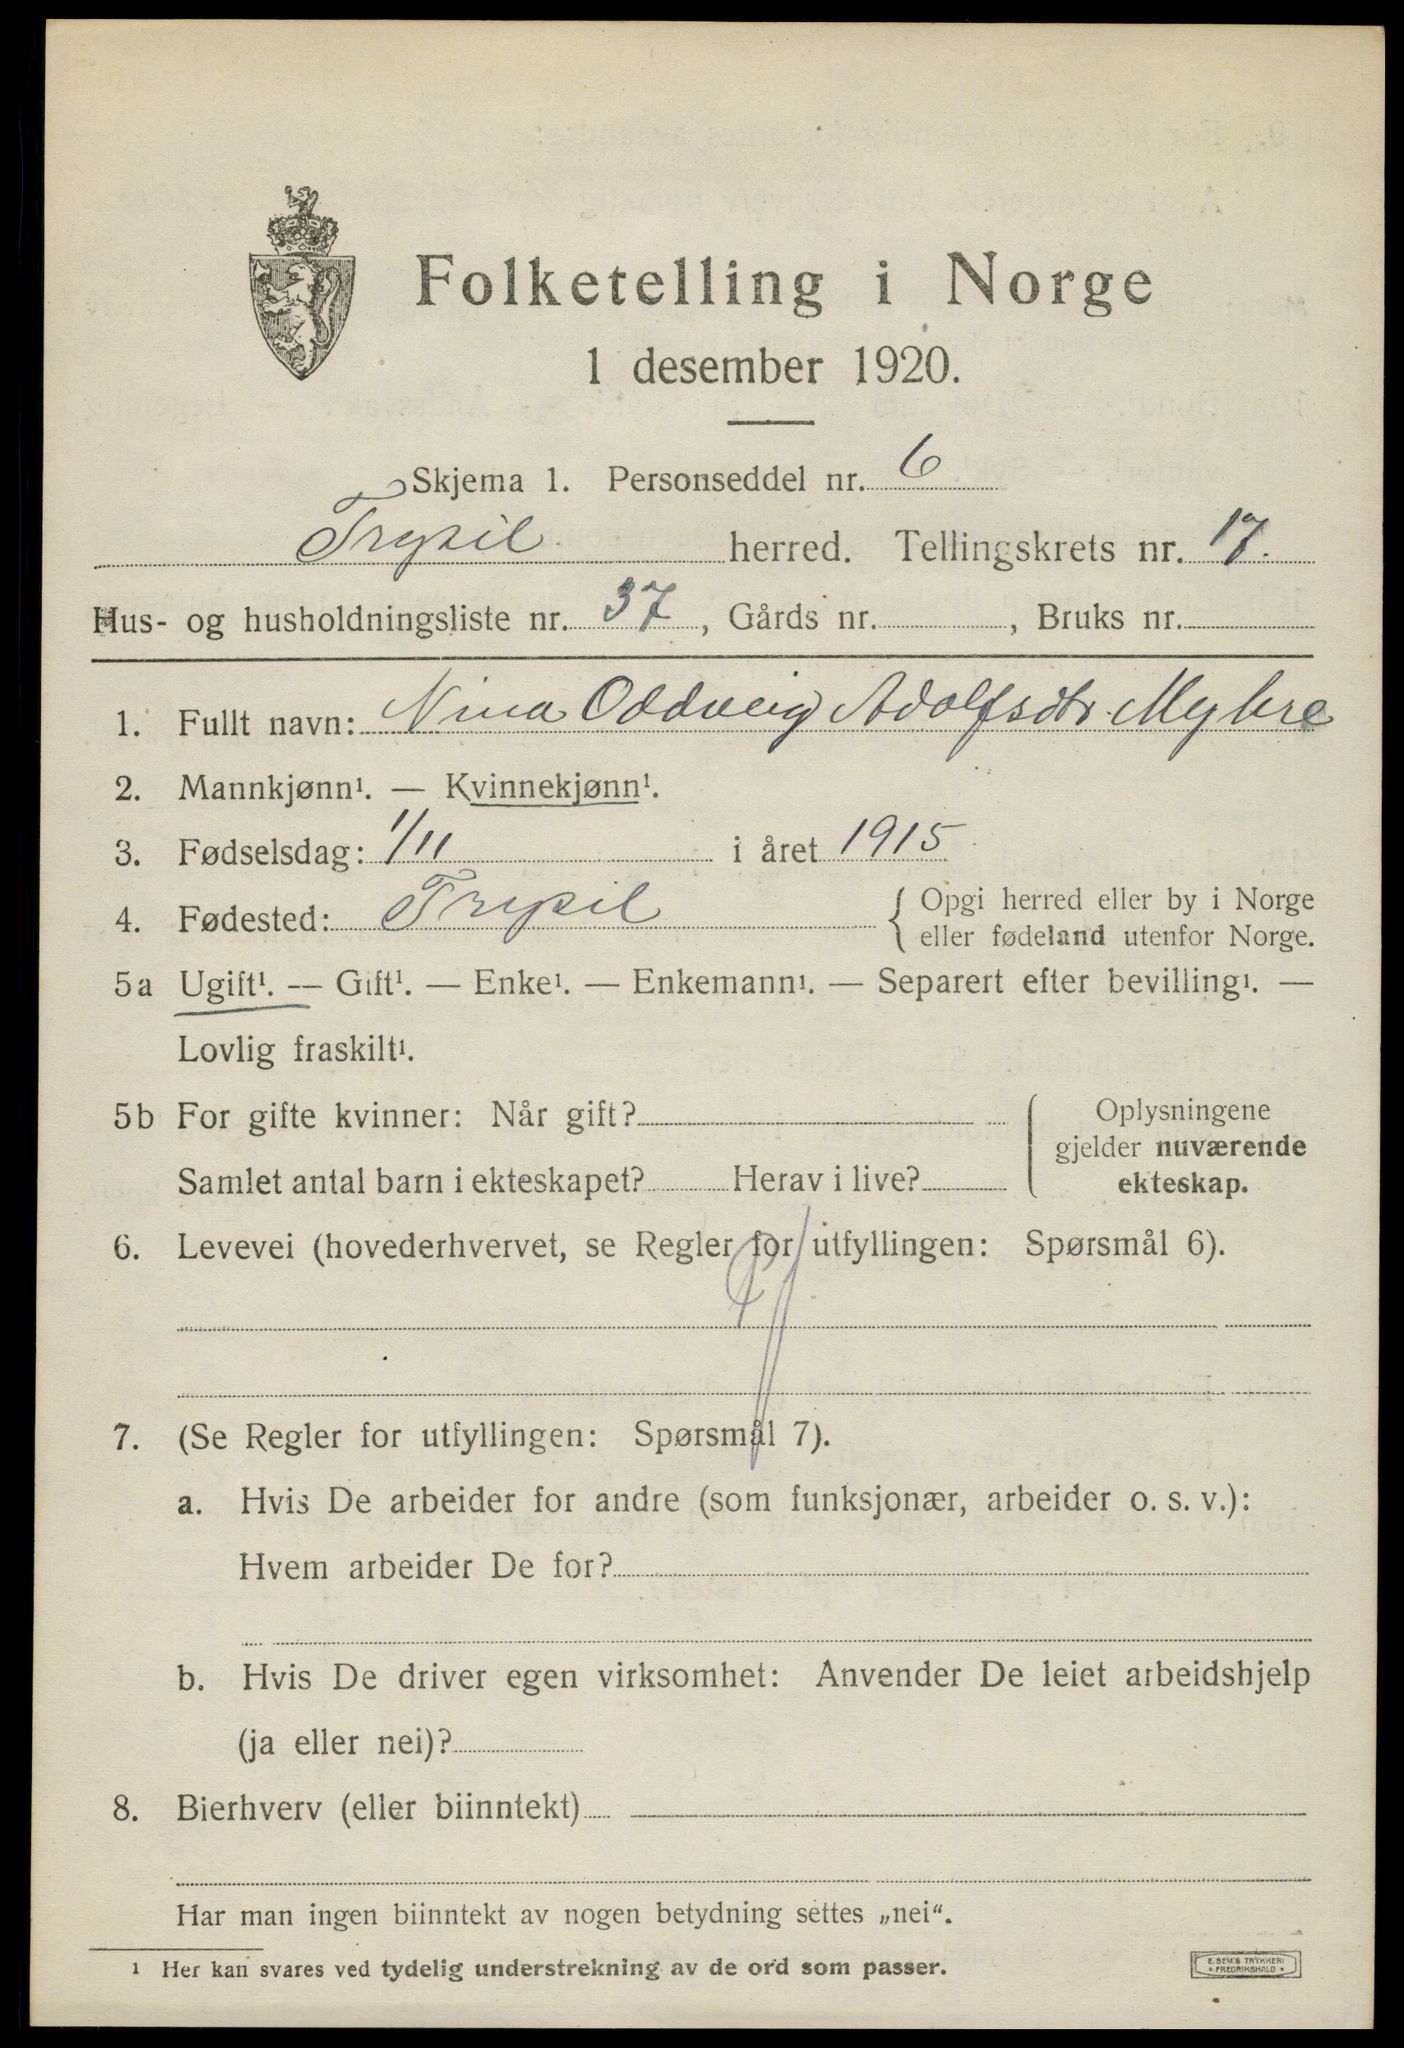 Folketelling i Norge
1 desember 1920.
Skjema 1. Personseddel nr. 6
Trysil herred. Tellingskrets nr. 17.
Hus- og husholdningsliste nr. 37, Gårds nr. , Bruks nr.
1. Fullt navn: Nina Oddveig Adolfsdtr. Myhre
2. Mannkjønn¹. — Kvinnekjønn¹.
3. Fødselsdag: 1/11 i året 1915
4. Fødested: Trysil { Opgi herred eller by i Norge
eller fødeland utenfor Norge.
5a Ugift¹. — Gift¹. — Enke¹. — Enkemann¹. — Separert efter bevilling¹. —
Lovlig fraskilt¹.
5b For gifte kvinner: Når gift? { Oplysningene
gjelder nuværende
Samlet antal barn i ekteskapet? Herav i live? ekteskap.
6. Levevei (hovederhvervet, se Regler for utfyllingen: Spørsmål 6).
7. (Se Regler for utfyllingen: Spørsmål 7).
a. Hvis De arbeider for andre (som funksjonær, arbeider o. s. v.):
Hvem arbeider De for?
b. Hvis De driver egen virksomhet: Anvender De leiet arbeidshjelp
(ja eller nei)?
8. Bierhverv (eller biinntekt) —
Har man ingen biinntekt av nogen betydning settes „nei“.
¹ Her kan svares ved tydelig understrekning av de ord som passer.
E. SEM'S TRYKKERI
* FREDRIKSHALD *